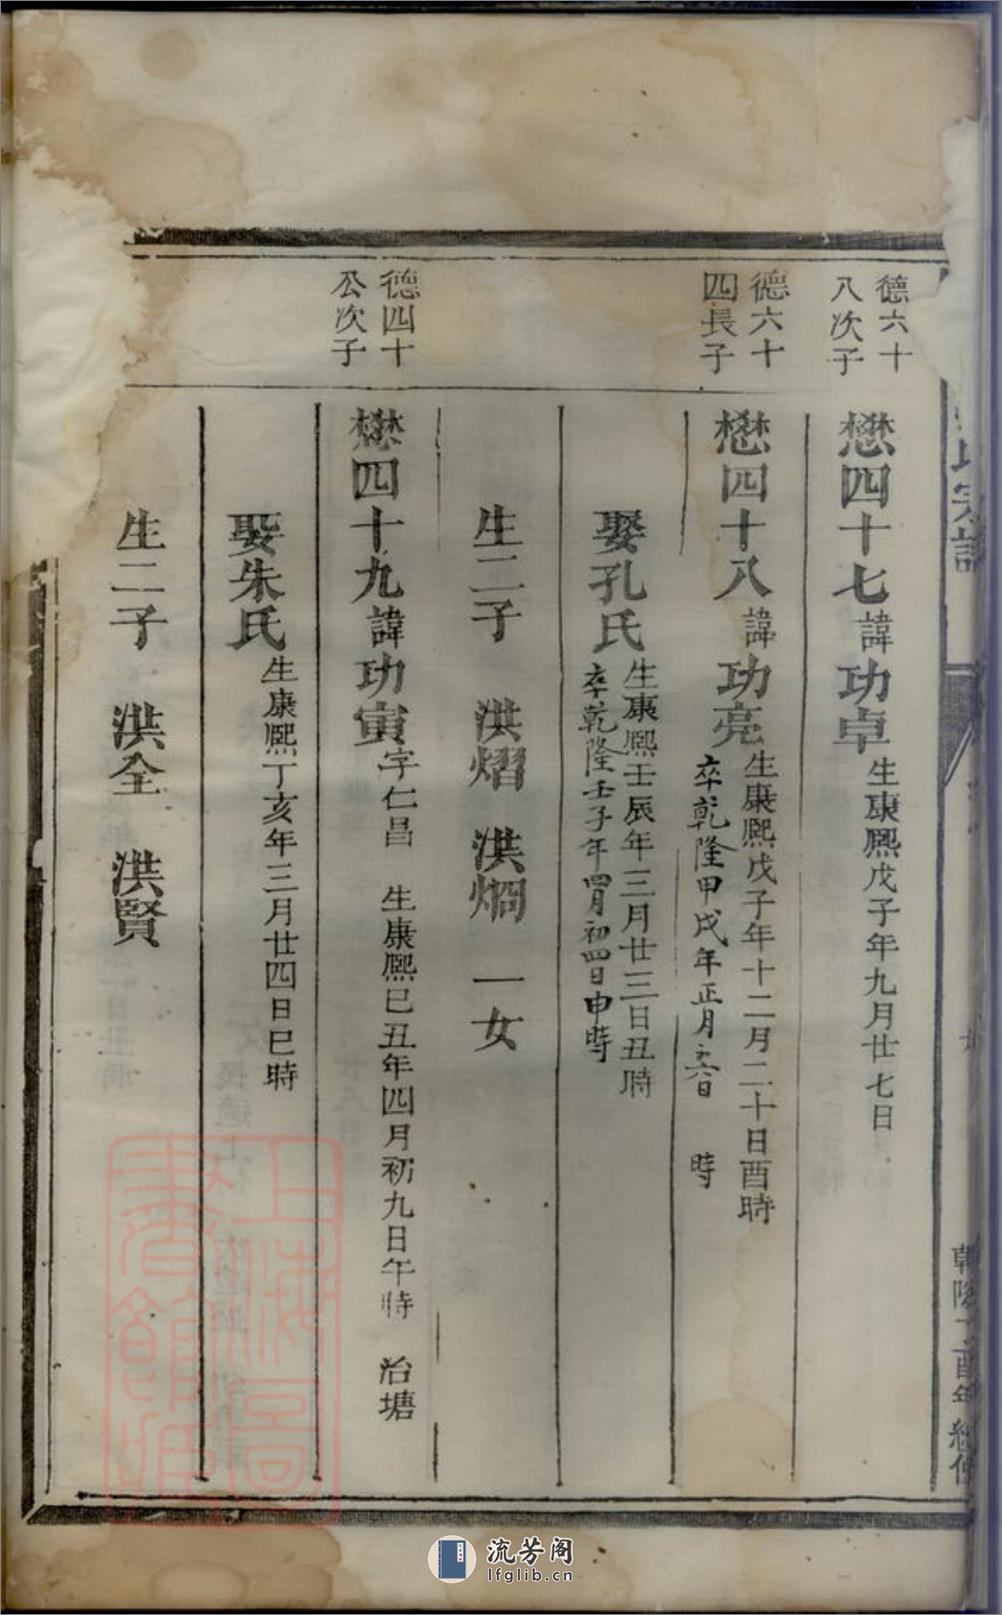 德六十
八次子
懋四十七諱功卓
生康熙戊子年九月廿七日
德六十
四長子
懋四十八諱功亮
生康熙戊子年十二月二十日酉時
卒乾隆甲戌年正月六日 時
娶孔氏
生康熙壬辰年三月廿三日丑時
卒乾隆壬子年四月初四日申時
生二子 洪熠 洪烱 一女
德四十
公次子
懋四十九諱功寅
字仁昌 生康熙己丑年四月初九日午時 治塘
娶朱氏
生康熙丁亥年三月廿四日巳時
生二子 洪全 洪賢
上海圖書館藏
流芳阁
lfglib.cn